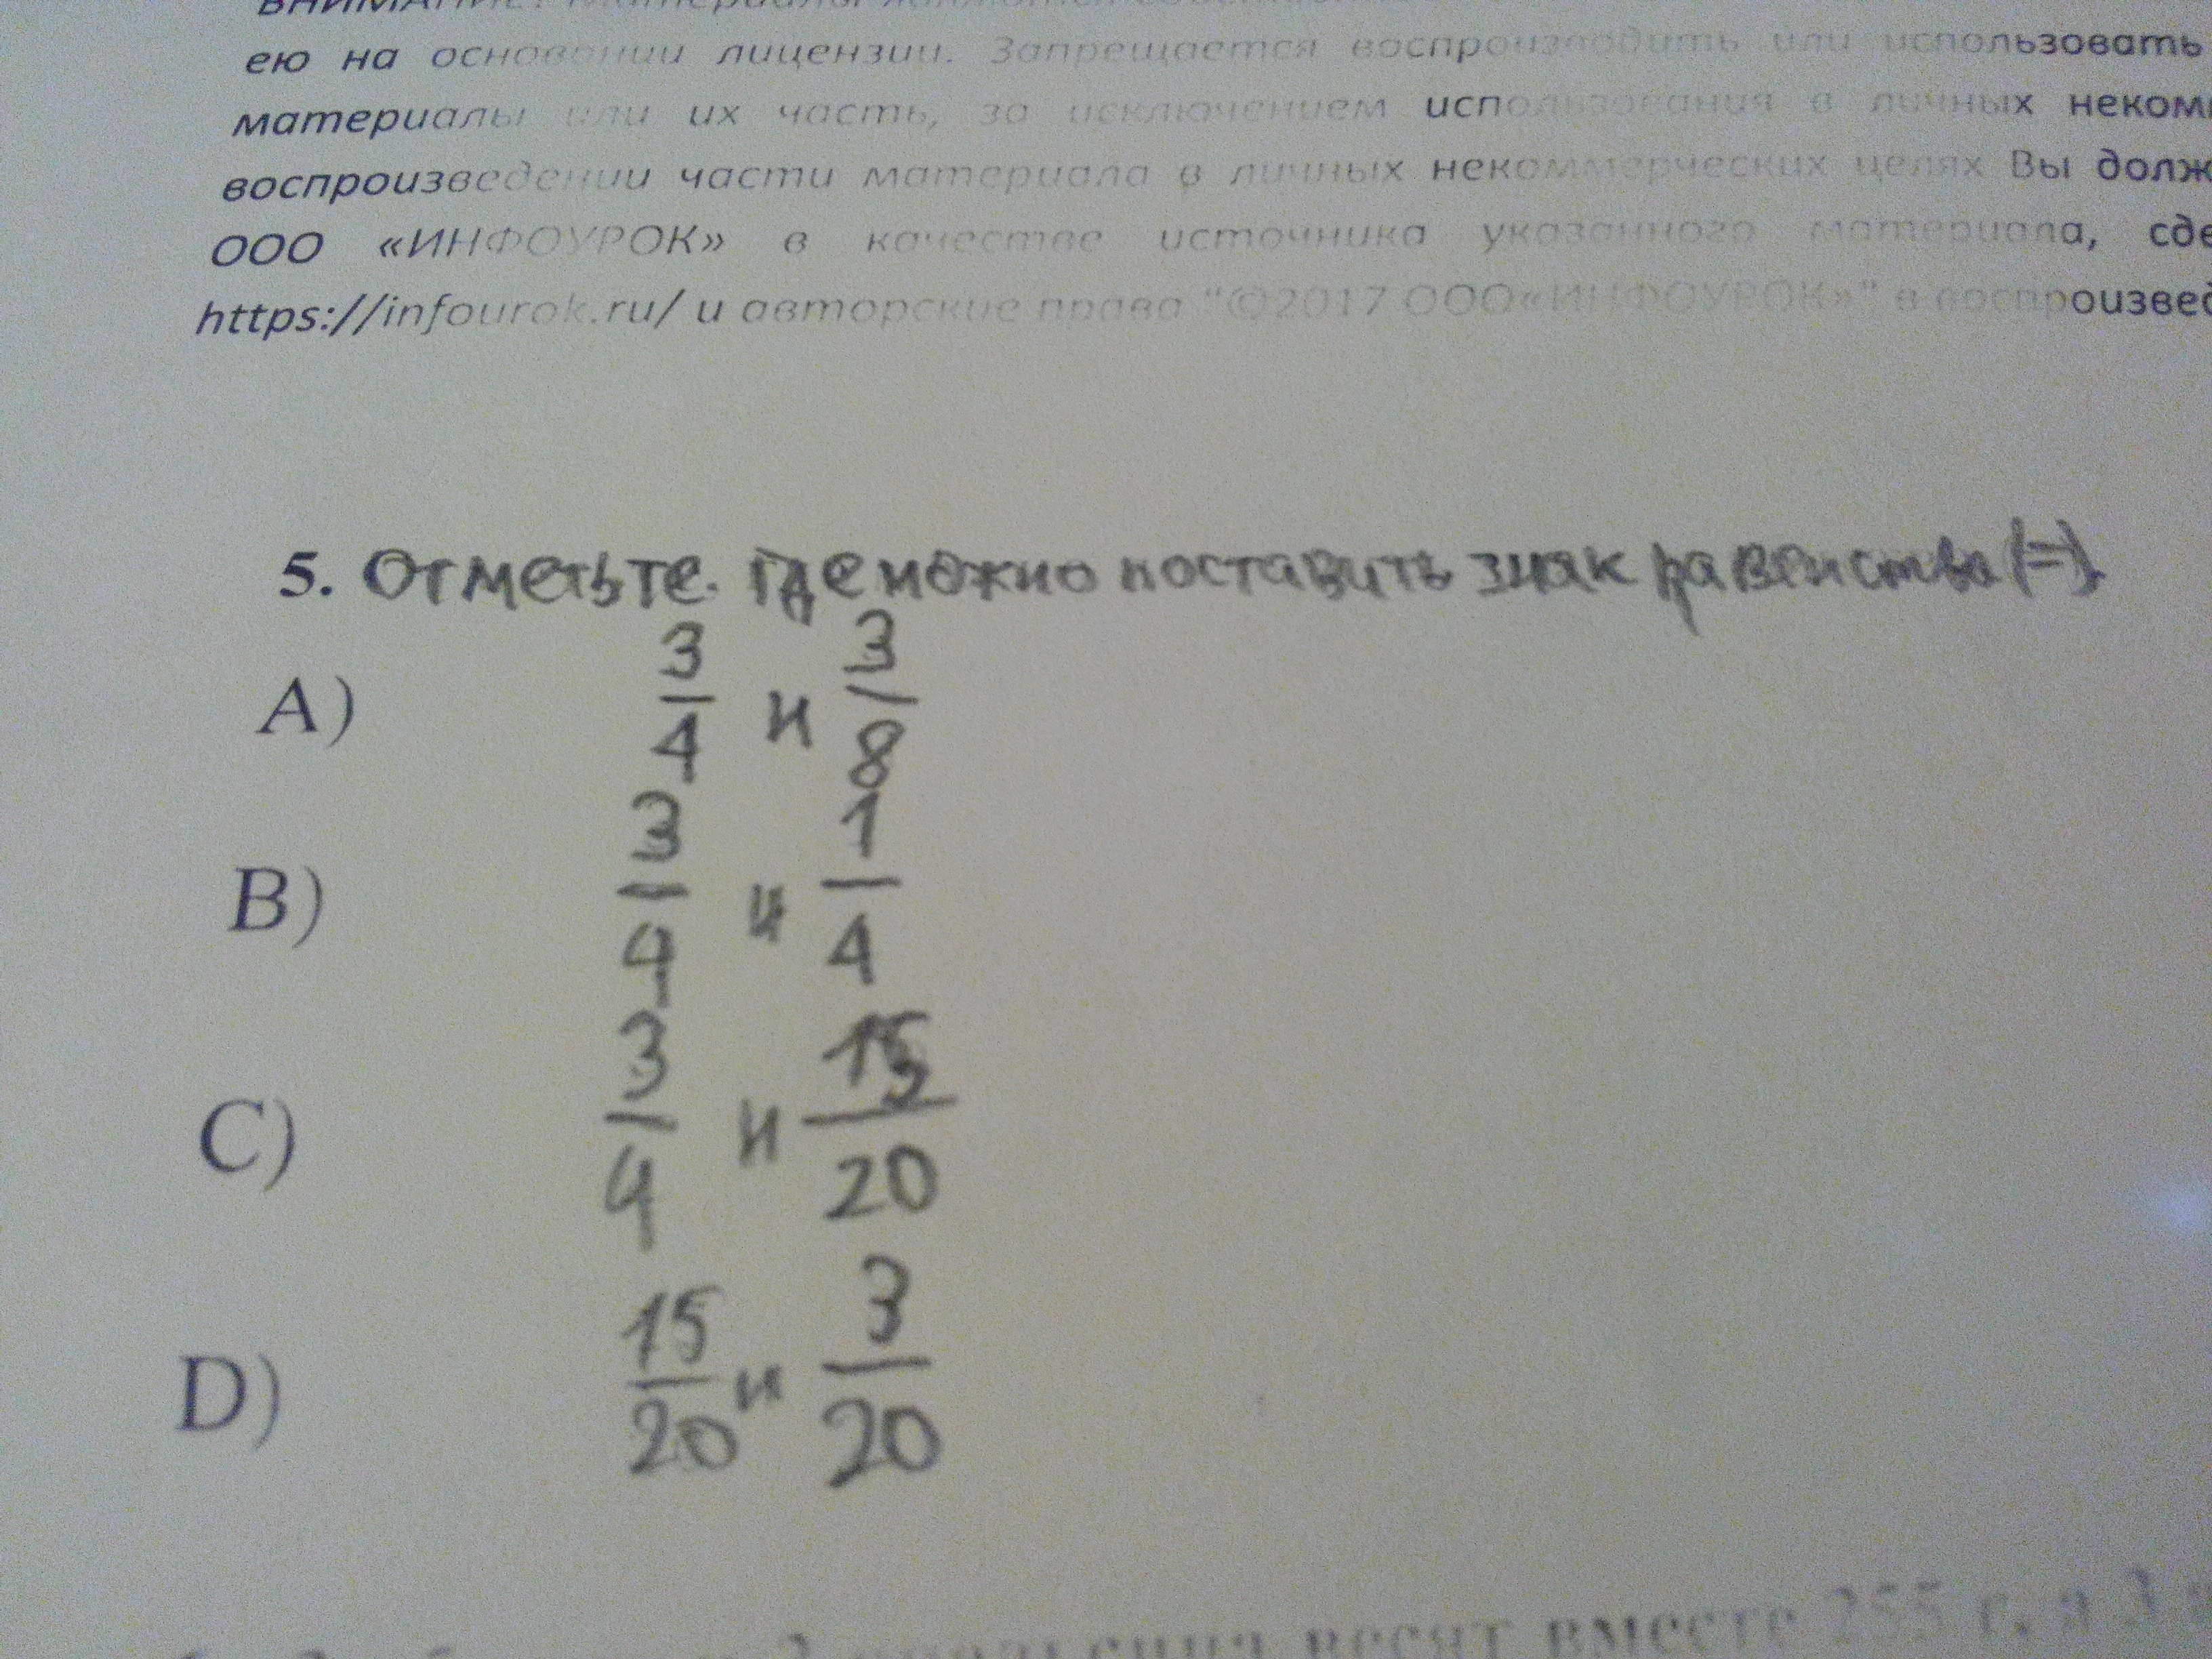 ВНИМАНИЕ! Материалы являются
ею на основании лицензии. Запрещается воспроизводить или использовать
материалы или их часть, за исключением использования в личных неком
воспроизведении части материала в личных некоммерческих целях Вы долж
ООО «ИНФОУРОК» в качестве источника указанного материала, сде
https://infourok.ru/ и авторские права "©2017 ООО«ИНФОУРОК»" в воспроизвед
5. Отметьте. где можно поставить знак равенства (=).
A) 3/4 и 3/8
B) 3/4 и 1/4
C) 3/4 и 15/20
D) 15/20 и 3/20
весят вместе 255 г, а 3